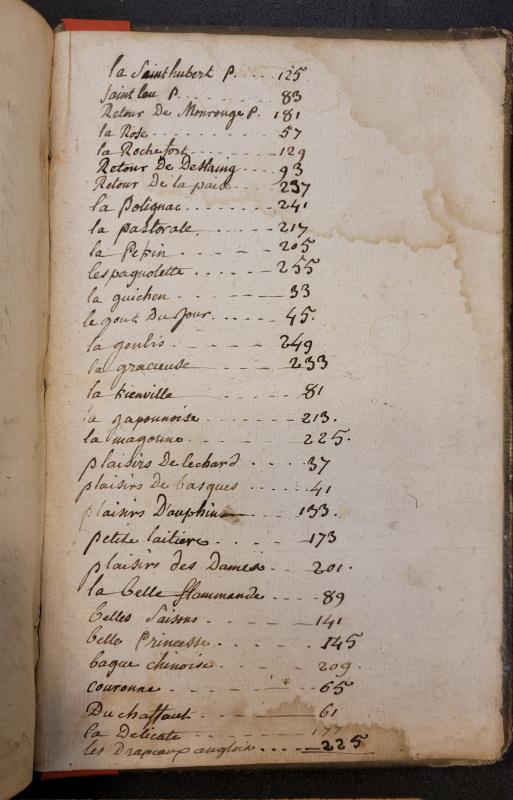 la Sainthubert P. . . . 125
Saint leu P. . . . . . . 83
Retour De Monrouge P. 181
la Rose . . . . . . . . . 57
la Rochefort . . . . . . 129
Retour De Destaing . . . 93
Retour De la paix . . . 237
la Polignac . . . . . . . 241
la pastorale . . . . . . 217
la Pepin . . . . . 205
lespagnolette . . . . . . 255
la guichen . . . . . 33
le gout Du Jour . . . . 45.
la genlis . . . . . . 249
la gracieuse 233
la kienville 81
la japonnoise . . . . . 213.
la magotine . . . . . 225.
plaisirs De lechard . . . . 37
plaisirs de basques . . . . . 41
plaisirs Dauphins . . . 133.
petite laitiere . . . . . 173
plaisirs des Dames . . . 201.
la belle flammande . . . . 89
belles Saisons . . . . . 141
belle Princesse . . . . . . 145
bague chinoise . . . . . 209.
couronne . . . . . . 65
Duchaffaut . . . . . 61
la Delicate . . . . . . 177
les Drapeaux anglois . . . . 225